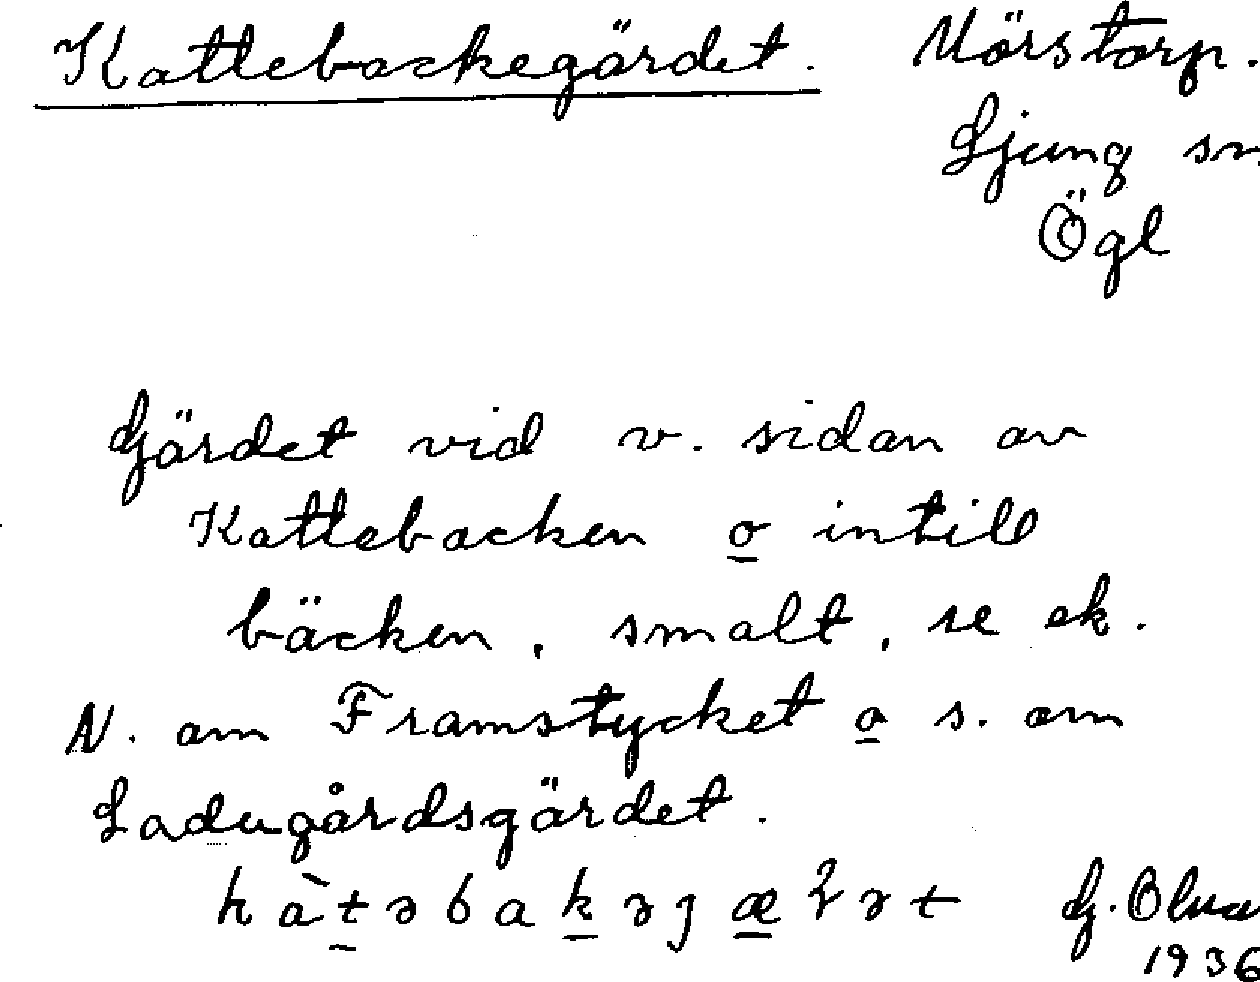 Kattebackegärdet. Mörstorp.
Ljung sn
Ögl
Gärdet vid v. sidan av
Kattebacken o intill
bäcken, smalt, se ek.
N. om Framstycket o s. om
Ladugårdsgärdet.
G.
1936